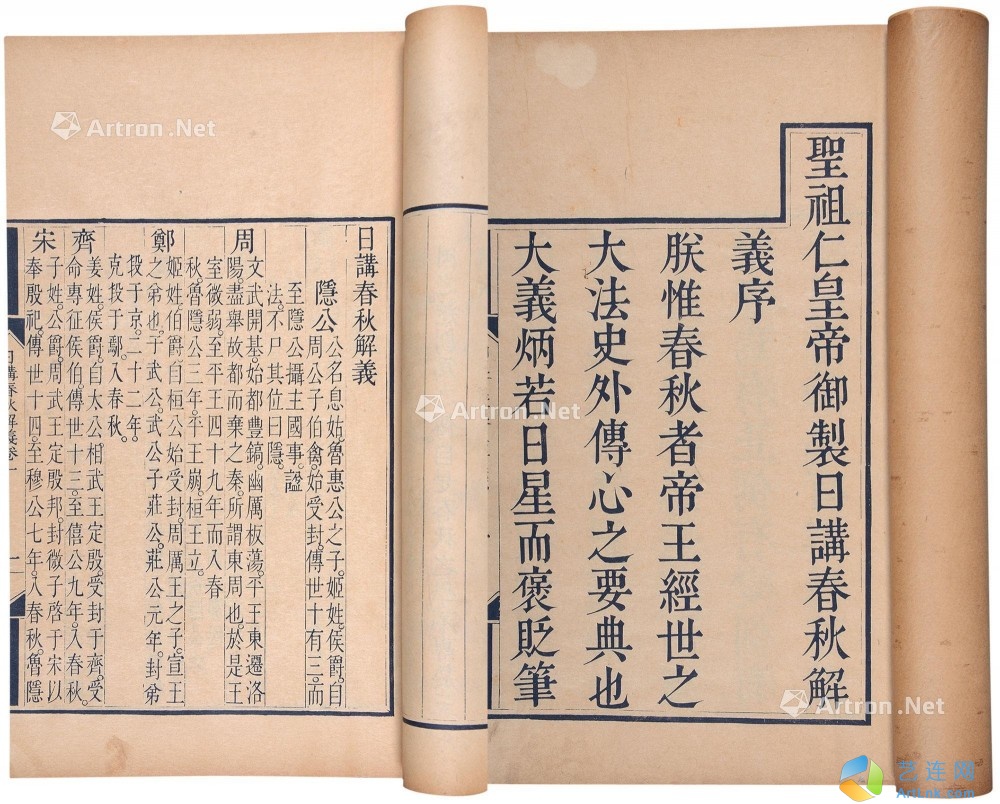 聖祖仁皇帝御製日講春秋解
義序
朕惟春秋者帝王經世之
大法史外傳心之要典也
大義炳若日星而褒貶筆
日講春秋解義
隱公
公名息姑。魯惠公之子。姬姓。侯爵。自
周公子伯禽。始受封。傳世十有三。而
至隱公。攝主國事。諡
法。不尸其位曰隱。
周
文武開基。始都豐鎬。幽厲板蕩。平王東遷洛
陽。盡舉故都而棄之秦。所謂東周也。於是王
室微弱。至平王四十九年而入春
秋。魯隱公三年。平王崩。桓王立。
鄭
姬姓。伯爵。自桓公始受封。周厲王之子。宣王
之弟也。子武公。武公子莊公。莊公元年。封弟
段于京。二十二年。
克段于鄢。入春秋。
齊
姜姓。侯爵。自太公相武王定殷。受封于齊。受
命專征侯伯。傳世十三。至僖公九年。入春秋。
宋
子姓。公爵。周武王定殷邦。封微子啓于宋。以
奉殷祀。傳世十四。至穆公七年。入春秋。魯隱
日講春秋解義卷一
一
Artron.Net
Artron.Net
Artron.Net
Artron.Net
艺连网
Artlnk.com